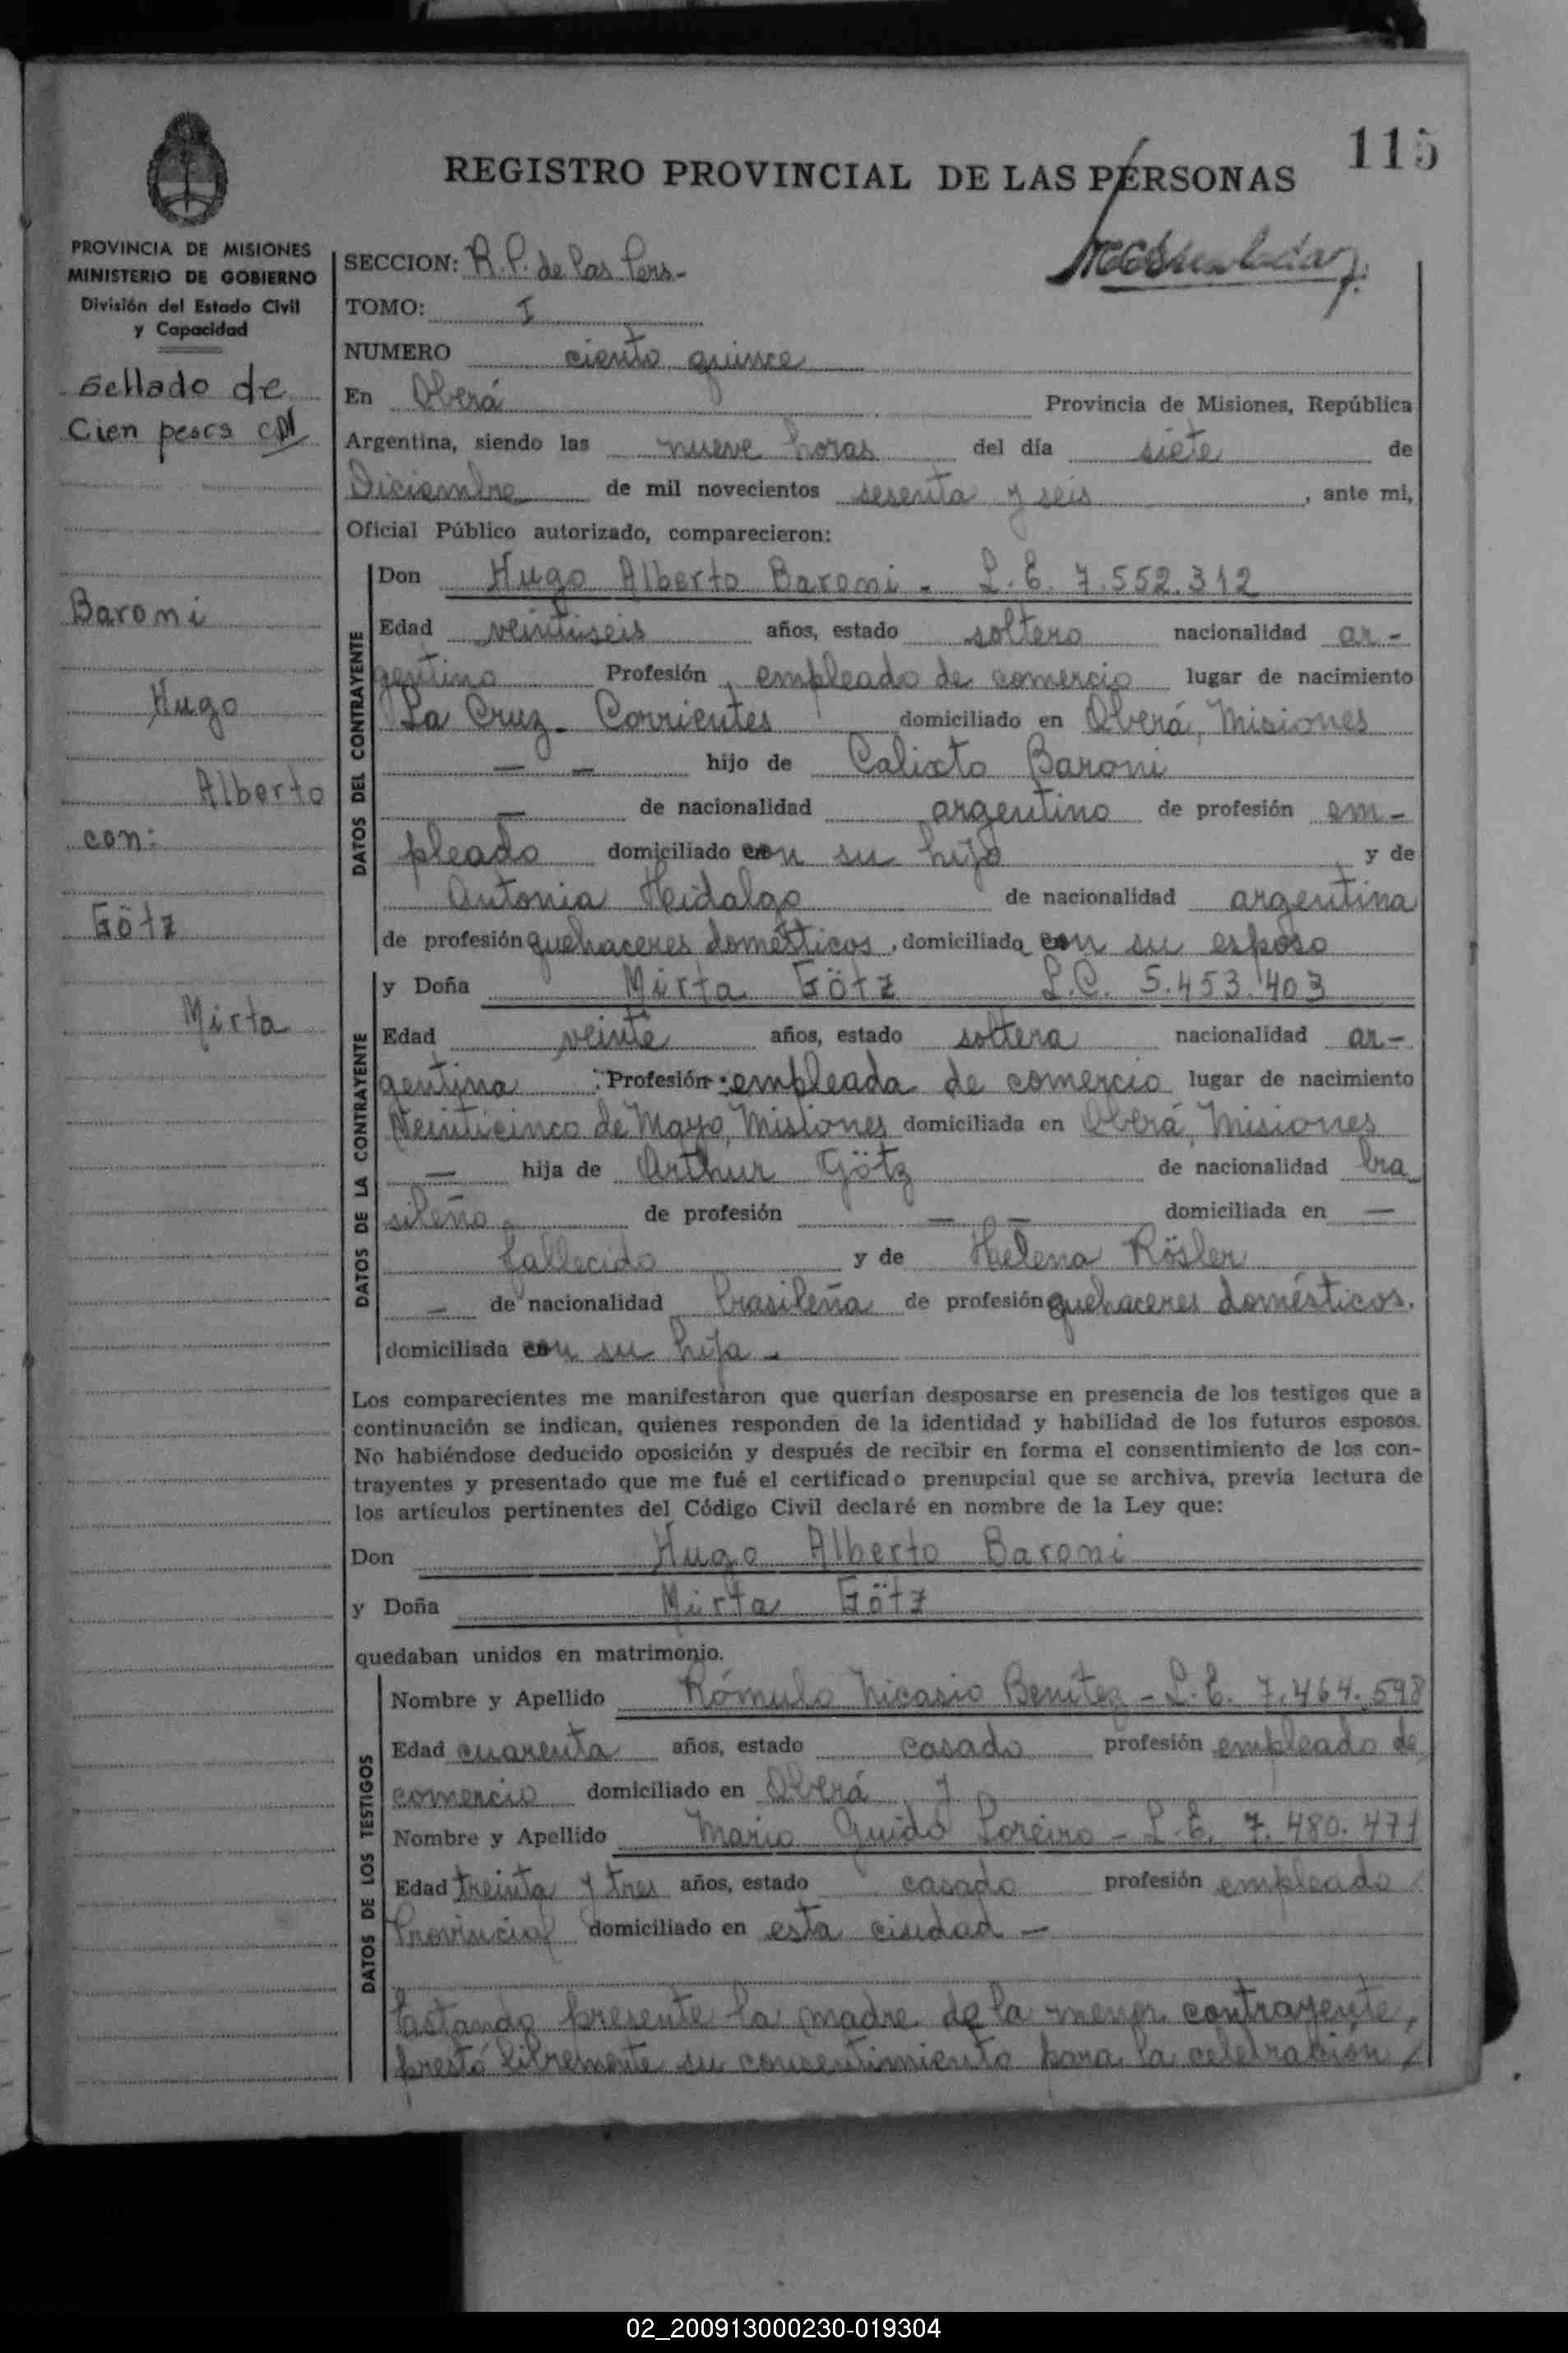 115
REGISTRO PROVINCIAL DE LAS PERSONAS
PROVINCIA DE MISIONES
MINISTERIO DE GOBIERNO
División del Estado Civil
y Capacidad
Sellado de
Cien pesos
Baroni
Hugo
Alberto
con:
Götz
Mirta
SECCION: R. P. de las Pers-
TOMO: I
NUMERO ciento quince
En Oberá Provincia de Misiones, República
Argentina, siendo las nueve horas del día siete de
Diciembre de mil novecientos sesenta y seis, ante mi,
Oficial Público autorizado, comparecieron:
DATOS DEL CONTRAYENTE
Don Hugo Alberto Baroni - L. E. 7.552.312
Edad veintiseis años, estado soltero nacionalidad ar-
gentino Profesión empleado de comercio lugar de nacimiento
La Cruz - Corrientes domiciliado en Oberá, Misiones
— — hijo de Calixto Baroni
— de nacionalidad argentino de profesión em-
pleado domiciliado con su hijo y de
Antonia Hidalgo de nacionalidad argentina
de profesión quehaceres domésticos, domiciliada con su esposo
DATOS DE LA CONTRAYENTE
y Doña Mirta Götz L.C. 5.453.403
Edad veinte años, estado soltera nacionalidad ar-
gentina Profesión empleada de comercio lugar de nacimiento
Veinticinco de Mayo, Misiones domiciliada en Oberá, Misiones
— hija de Arthur Götz de nacionalidad bra
sileño. de profesión — — domiciliada en —
fallecido y de Helena Rösler
— de nacionalidad brasileña de profesión quehaceres domésticos.
domiciliada con su hija -
Los comparecientes me manifestaron que querían desposarse en presencia de los testigos que a
continuación se indican, quienes responden de la identidad y habilidad de los futuros esposos.
No habiéndose deducido oposición y después de recibir en forma el consentimiento de los con-
trayentes y presentado que me fué el certificado prenupcial que se archiva, previa lectura de
los artículos pertinentes del Código Civil declaré en nombre de la Ley que:
Don Hugo Alberto Baroni
y Doña Mirta Götz
quedaban unidos en matrimonio.
DATOS DE LOS TESTIGOS
Nombre y Apellido Rómulo Nicasio Benítez - L. E. 7.464.598
Edad cuarenta años, estado casado profesión empleado de
comercio domiciliado en Oberá y
Nombre y Apellido Mario Guido Loreiro - L. E. 7.480.471
Edad treinta y tres años, estado casado profesión empleado
Provincial domiciliado en esta ciudad —
Estando presente la madre de la menor contrayente,
prestó libremente su consentimiento para la celebración /
02_200913000230-019304